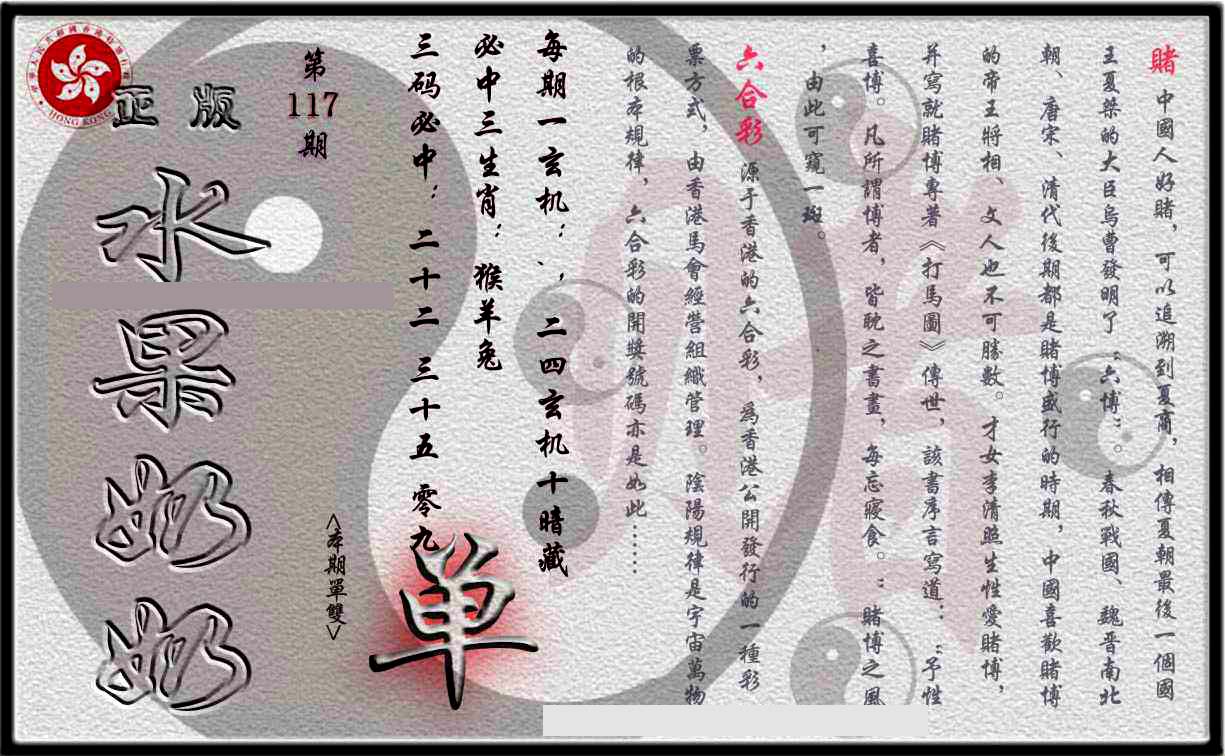 賭 中國人好賭，可以追溯到夏商，相傳夏朝最後一個國
王夏桀的大臣烏曹發明了“六博”。春秋戰國、魏晋南北
朝、唐宋、清代後期都是賭博盛行的時期，中國喜歡賭博
的帝王將相、文人也不可勝數。才女李清照生性愛賭博，
并寫就賭博專著《打馬圖》傳世，該書序言寫道：“予性
喜博。凡所謂博者，皆耽之書畫，每忘寢食。”賭博之風
，由此可窺一斑。
六合彩 源于香港的六合彩，為香港公開發行的一種彩
票方式，由香港馬會經營組織管理。陰陽規律是宇宙萬物
的根本規律，六合彩的開獎號碼亦是如此……
每期一玄机：、，二四玄机十暗藏
必中三生肖：猴羊兔
三码必中：二十二 三十五 零九
单
<本期單雙>
第
117
期
正版
水果奶奶
HONG KONG